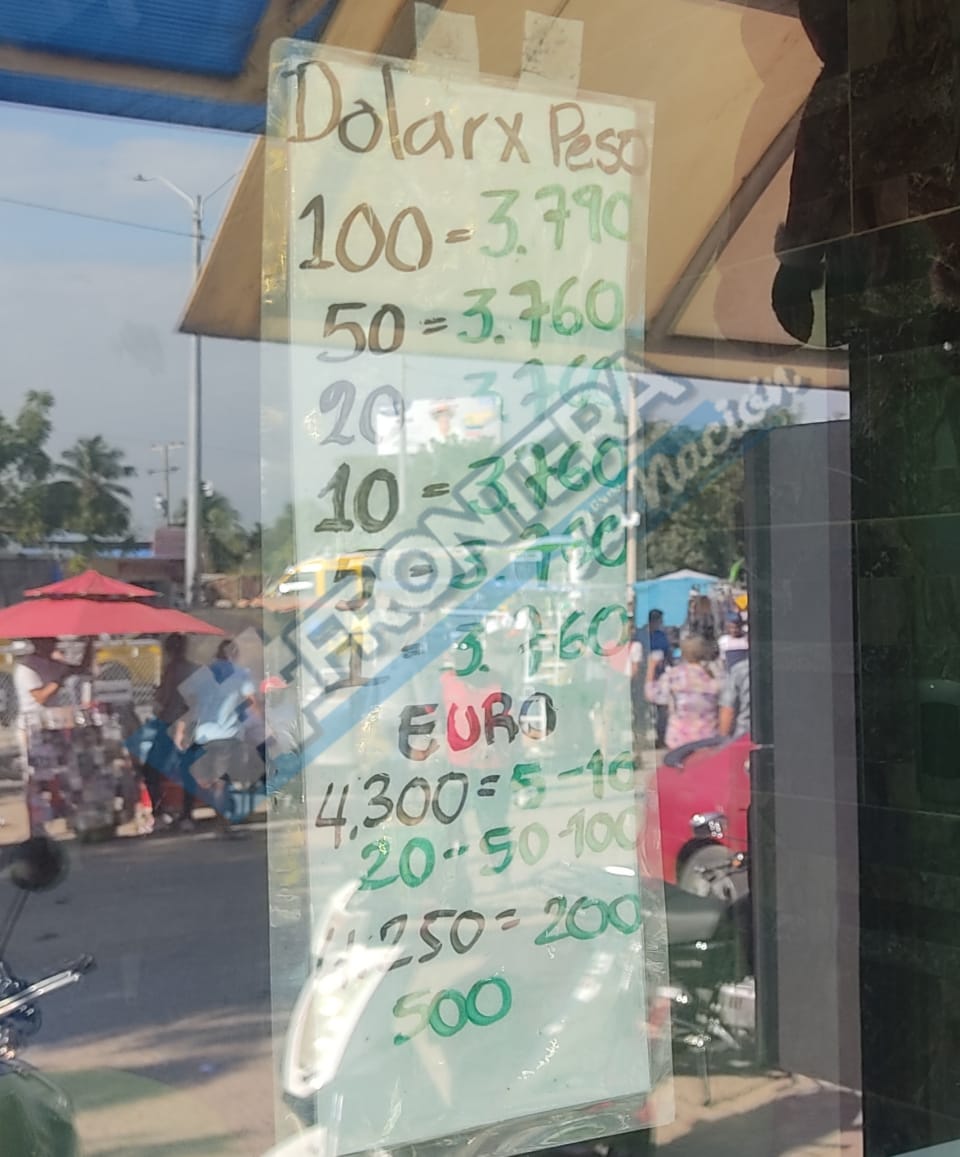 Dolar x Peso
100 = 3.790
50 = 3.760
20 3.760
10 = 3.760
5 = 3.760
1 = 3.760
EURO
4.300 = 5 - 10
20 - 50 - 100
4.250 = 200
500
LA FRONTERA
Nación